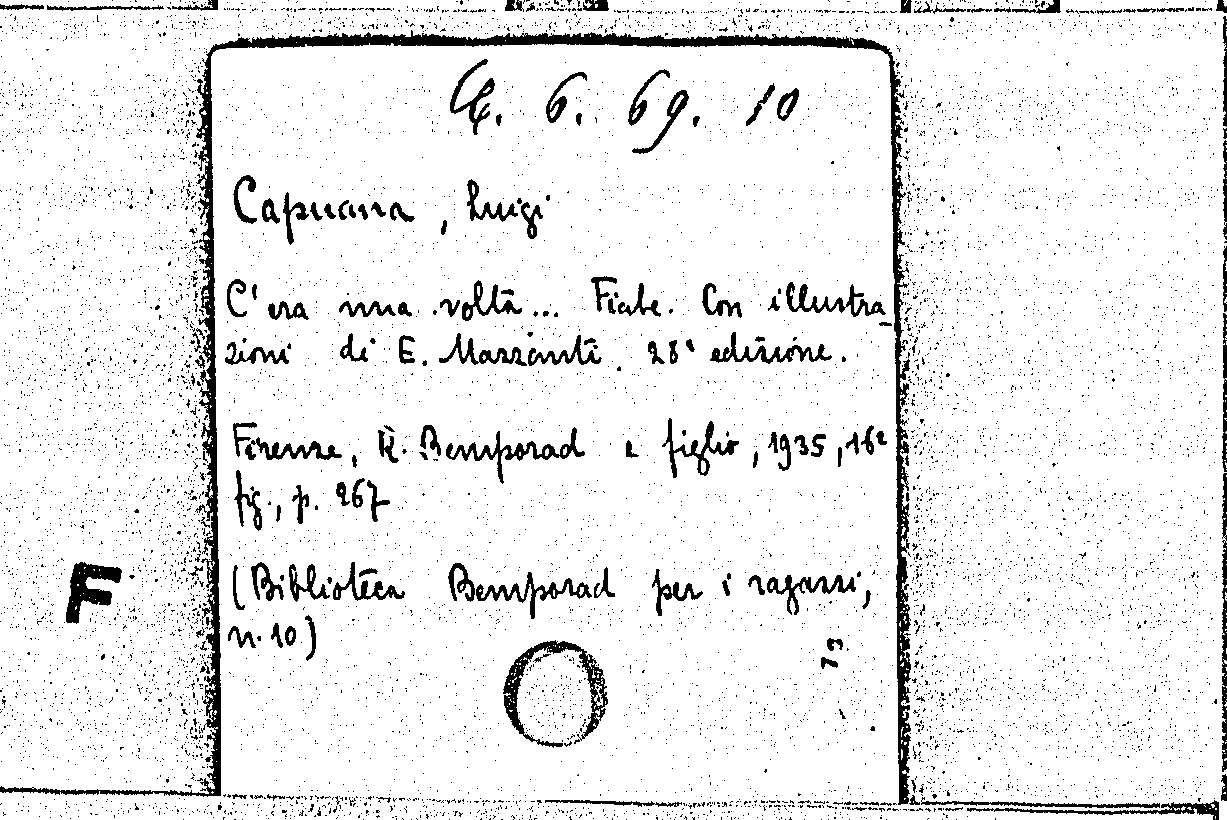 6. 69. 10
Capuana, Luigi
C'era una volta... Fiabe. Con illustra-
zioni di E. Mazzanti. 28ª edizione.
Firenze, R. Bemporad e figlio, 1935, 16º
fig., p. 267
(Biblioteca Bemporad per i ragazzi,
n. 10)
F